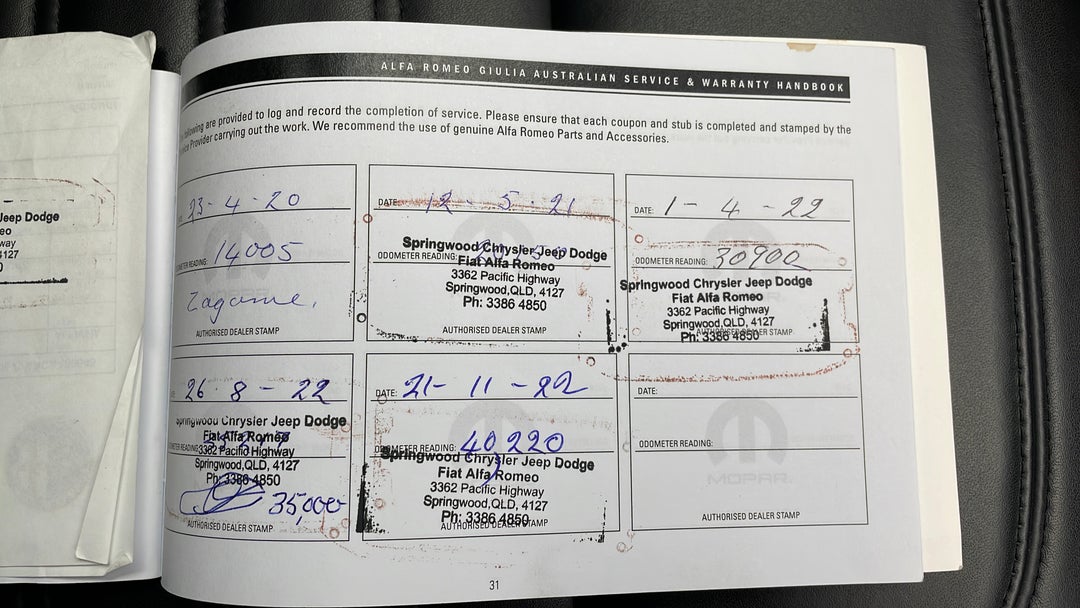 ALFA ROMEO GIULIA AUSTRALIAN SERVICE & WARRANTY HANDBOOK
are provided to log and record the completion of service. Please ensure that each coupon and stub is completed and stamped by the
Provider carrying out the work. We recommend the use of genuine Alfa Romeo Parts and Accessories.
23-4-20
14005
Zagame.
AUTHORISED DEALER STAMP
DATE: 12-5-21
Springwood Chrysler Jeep Dodge
ODOMETER READING:
Fiat Alfa Romeo
3362 Pacific Highway
Springwood,QLD, 4127
Ph: 3386 4850
AUTHORISED DEALER STAMP
DATE: 1-4-22
ODOMETER READING: 30900
Springwood Chrysler Jeep Dodge
Fiat Alfa Romeo
3362 Pacific Highway
Springwood,QLD, 4127
AUTHORISED DEALER STAMP
Ph: 3386 4850
26-8-22
Springwood Chrysler Jeep Dodge
Fiat Alfa Romeo
3362 Pacific Highway
Springwood,QLD, 4127
Ph: 3386 4850
35,000
AUTHORISED DEALER STAMP
DATE: 21-11-22
ODOMETER READING: 40220
Springwood Chrysler Jeep Dodge
Fiat Alfa Romeo
3362 Pacific Highway
Springwood,QLD, 4127
Ph: 3386 4850
AUTHORISED DEALER STAMP
DATE:
ODOMETER READING:
MOPAR
AUTHORISED DEALER STAMP
31
Jeep Dodge
4127